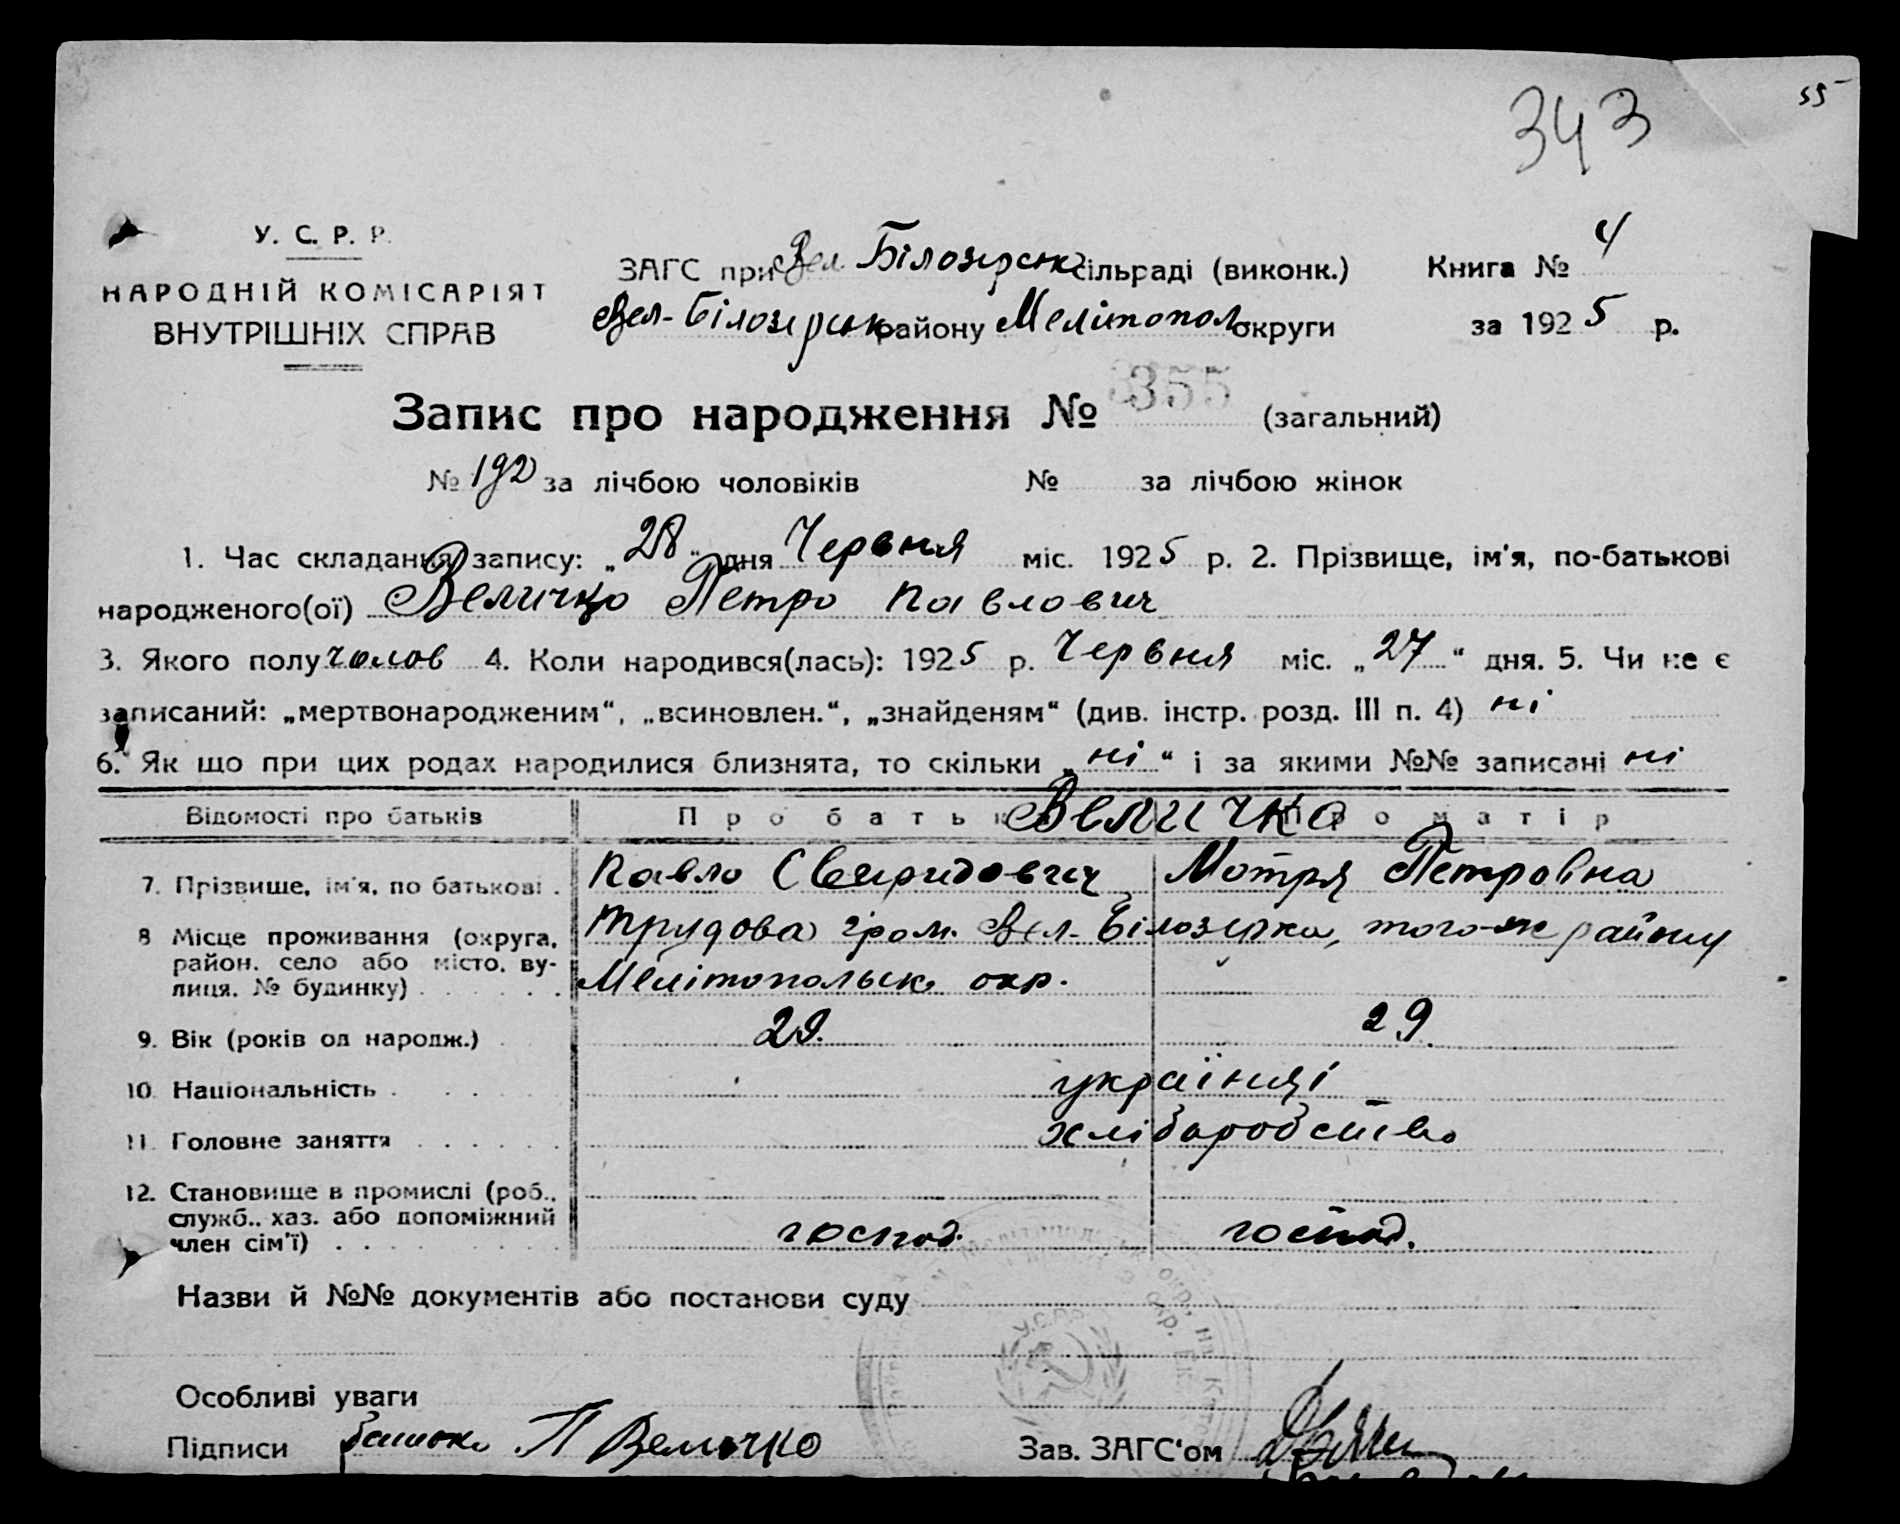 343
55
У. С. Р. Р.
НАРОДНІЙ КОМІСАРІЯТ
ВНУТРІШНІХ СПРАВ
ЗАГС при Вел Білозерськ сільраді (виконк.)
Вел-Білозерськ району Мелітопол округи
Книга № 4
за 1925 р.
Запис про народження № 355 (загальний)
№ 192 за лічбою чоловіків № за лічбою жінок
1. Час складання запису: „28“ дня Червня міс. 1925 р. 2. Прізвище, ім'я, по-батькові
народженого(ої) Величко Петро Павлович
3. Якого полу чолов 4. Коли народився(лась): 1925 р. Червня міс. „27“ дня. 5. Чи не є
записаний: „мертвонародженим“, „всиновлен.“, „знайденям“ (див. інстр. розд. III п. 4) ні
6. Як що при цих родах народилися близнята, то скільки „ні“ і за якими №№ записані ні
Відомості про батьків Про батька Величко Про матір
7. Прізвище, ім'я, по батькові . Павло Свиридович Мотря Петровна
8 Місце проживання (округа, район, село або місто, ву-лиця, № будинку) Трудова гром. Вел-Білозерка, того-ж району
Мелітопольськ окр.
9. Вік (років од народж.) 29. 29.
10. Національність українці
11. Головне заняття хліборобство
12. Становище в промислі (роб., служб., хаз. або допоміжний член сім'ї) господ. господ.
Назви й №№ документів або постанови суду
У.С.Р.Р.
Особливі уваги
Підписи батько П Величко Зав. ЗАГС'ом